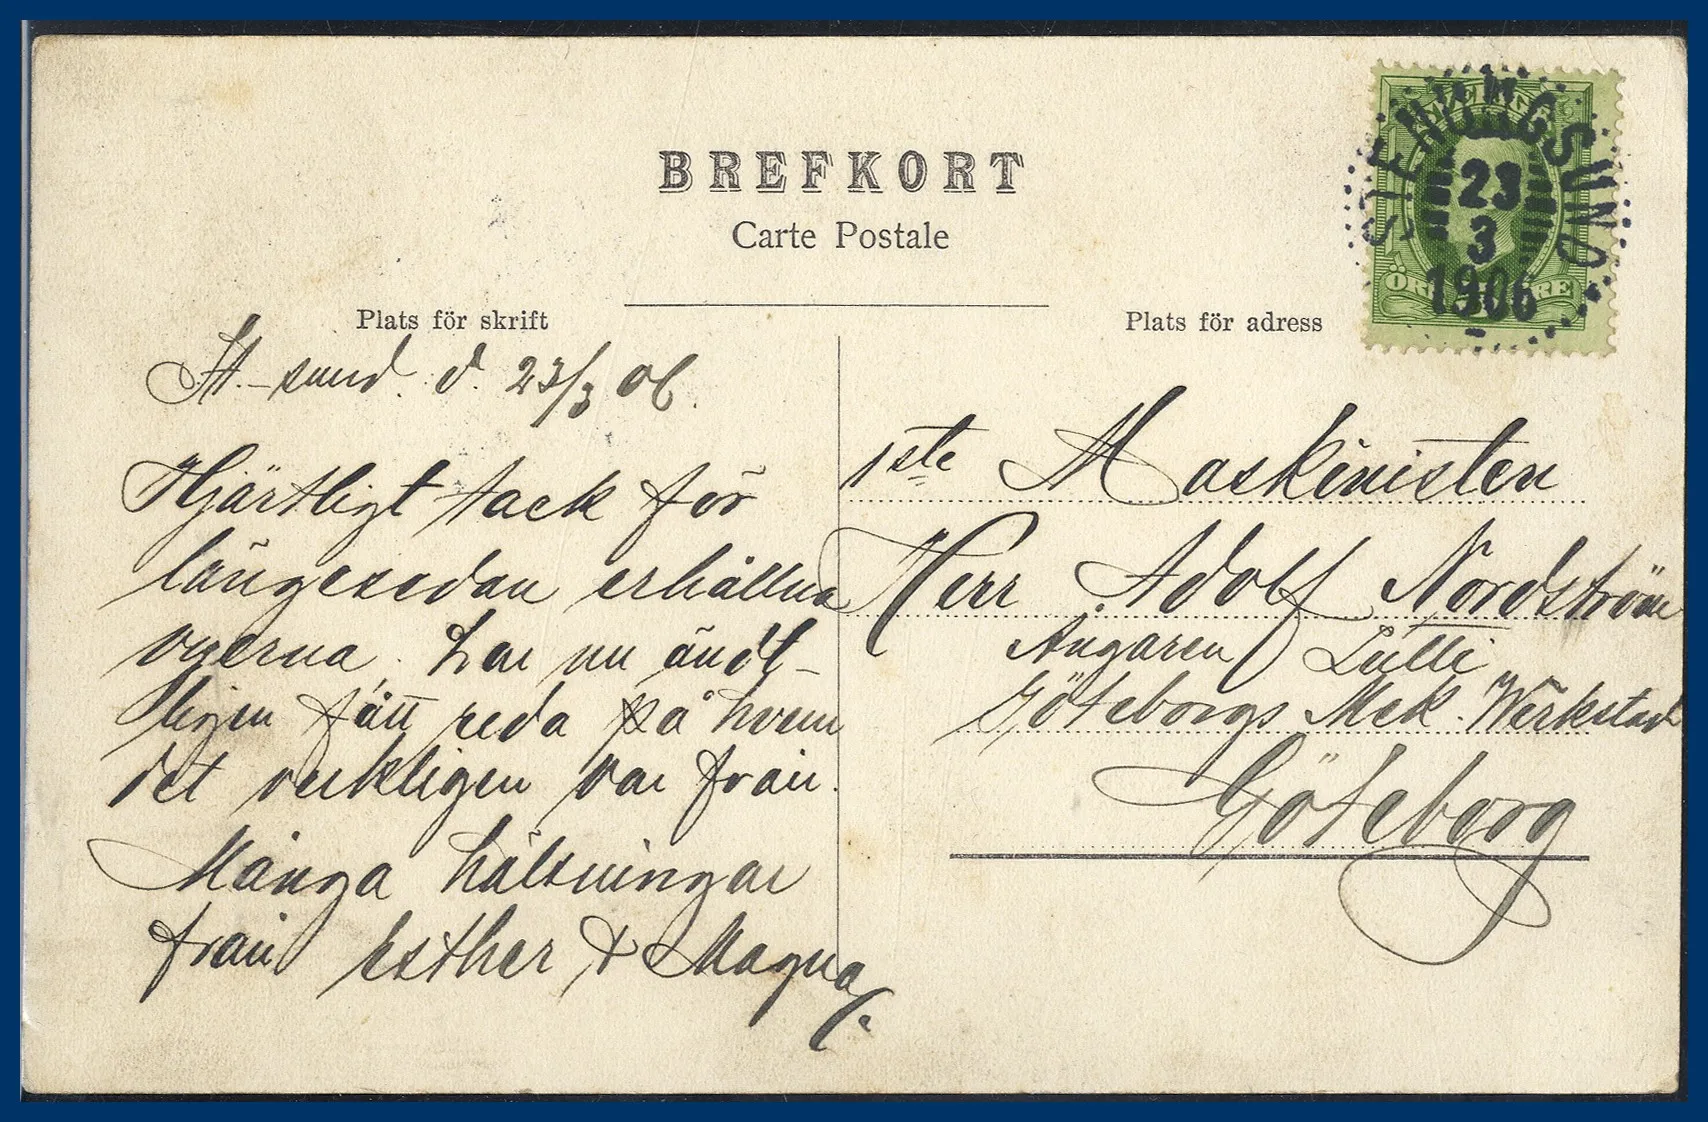 BREFKORT
Carte Postale
Plats för skrift
St.-sund. d. 23/3 06.
Hjärtligt tack för
längesedan erhållna
vyerna. har nu ändt-
ligen fått reda på hvem
det verkligen var från.
Många hälsningar
från Esther & Magna/.
Plats för adress
STENUNGSUND
23
3
1906
1ste Maskinisten
Herr Adolf Nordström
Ångaren Lulli
Göteborgs Mek. Werkstad
Göteborg